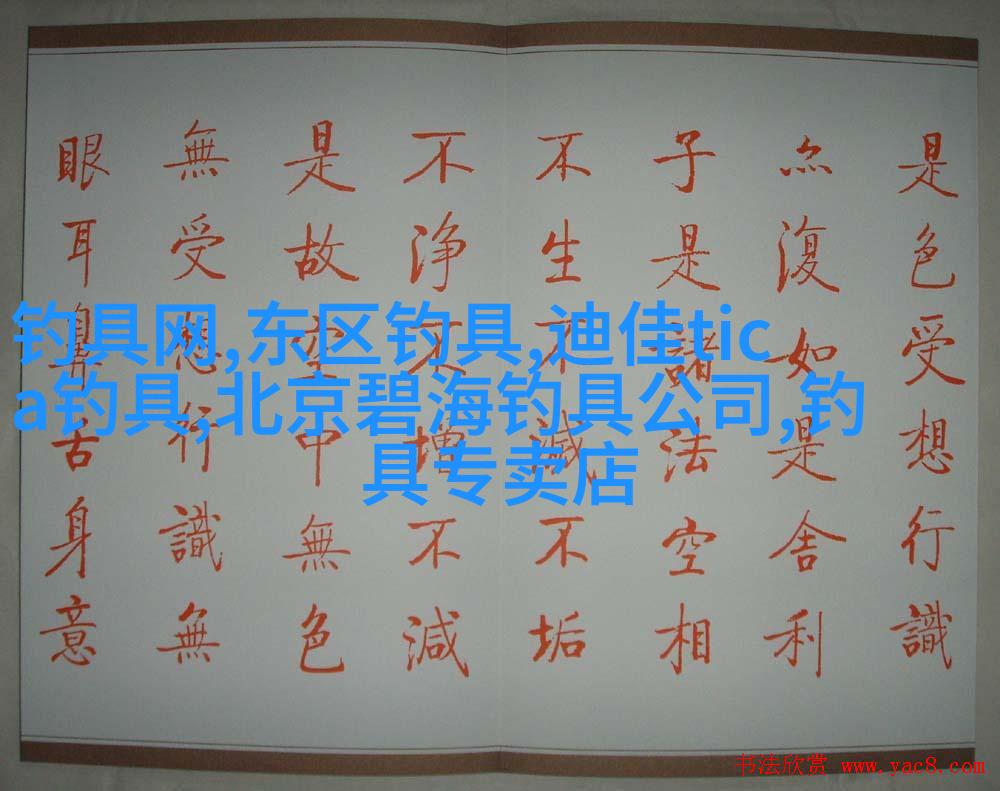 是色受想行識
亦復如是舍利
子是諸法空相
不生不滅不垢
不浄不增不減
是故空中無色
無受想行識無
眼耳鼻舌身意
钓具网,东区钓具,迪佳tic
a钓具,北京碧海钓具公司,钓
具专卖店
书法欣赏 www.yac8.com